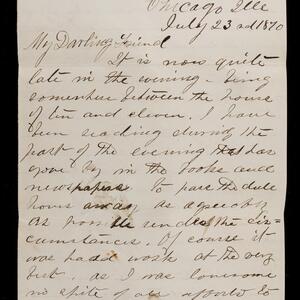 Chicago Ills
July 23rd 1870
My Darling Friend
It is now quite
late in the evening - being
somewher between the hours
of ten and eleven. I have
been reading during the
part of the evening that has
gone by in the books and
newspapers to pass the dull
hours away as agreeably
as possible under the cir-
cumstances. Of course it
was hard work at the very
best, as I was lonesome
in spite of all efforts to